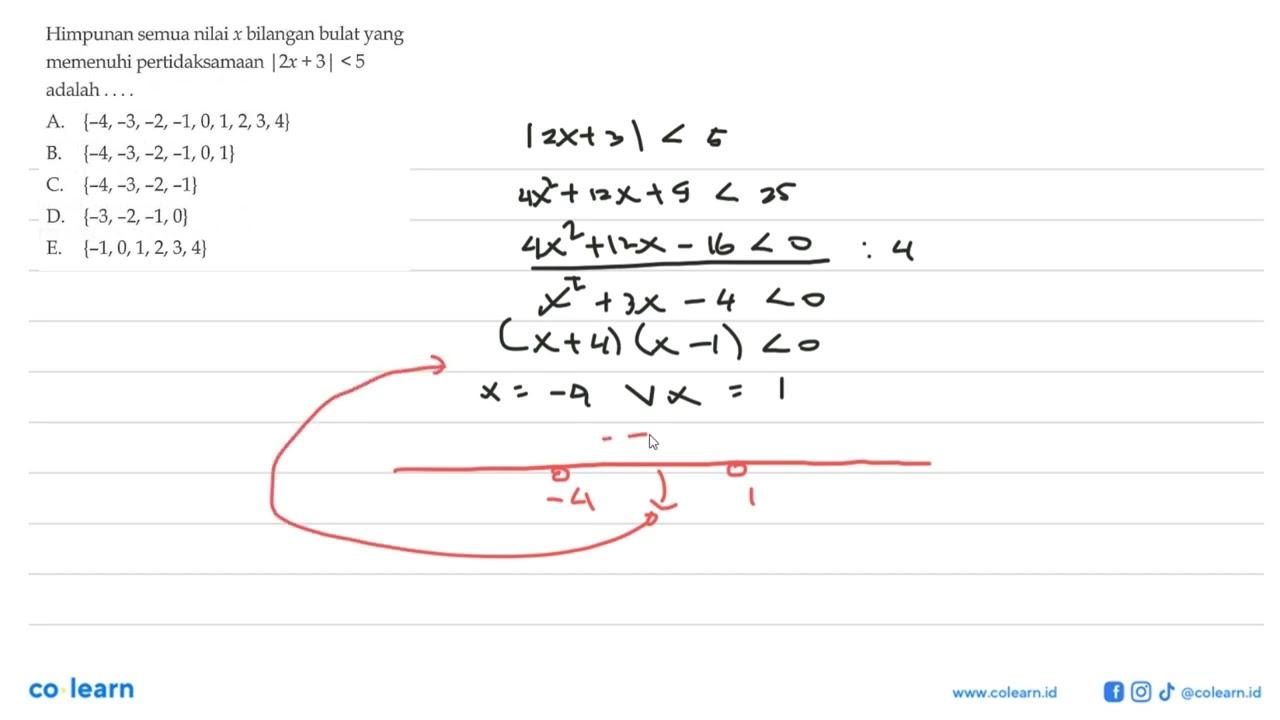 Himpunan semua nilai x bilangan bulat yang
memenuhi pertidaksamaan |2x + 3| < 5
adalah . . . .
A. {–4, –3, –2, –1, 0, 1, 2, 3, 4}
B. {–4, –3, –2, –1, 0, 1}
C. {–4, –3, –2, –1}
D. {–3, –2, –1, 0}
E. {–1, 0, 1, 2, 3, 4}
|2x+3| < 5
4x²+12x+9 < 25
4x²+12x-16 <0 : 4
x²+3x-4 <0
(x+4)(x-1) <0
x = -4 ∨ x = 1
- -
-4 0 1
co learn
www.colearn.id @colearn.id